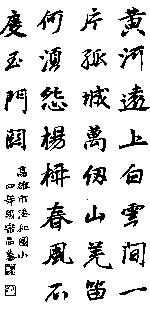 黃河遠上白雲間一
片孤城萬仞山羌笛
何須怨楊柳春風不
度玉門關
高雄市港和國小
四年